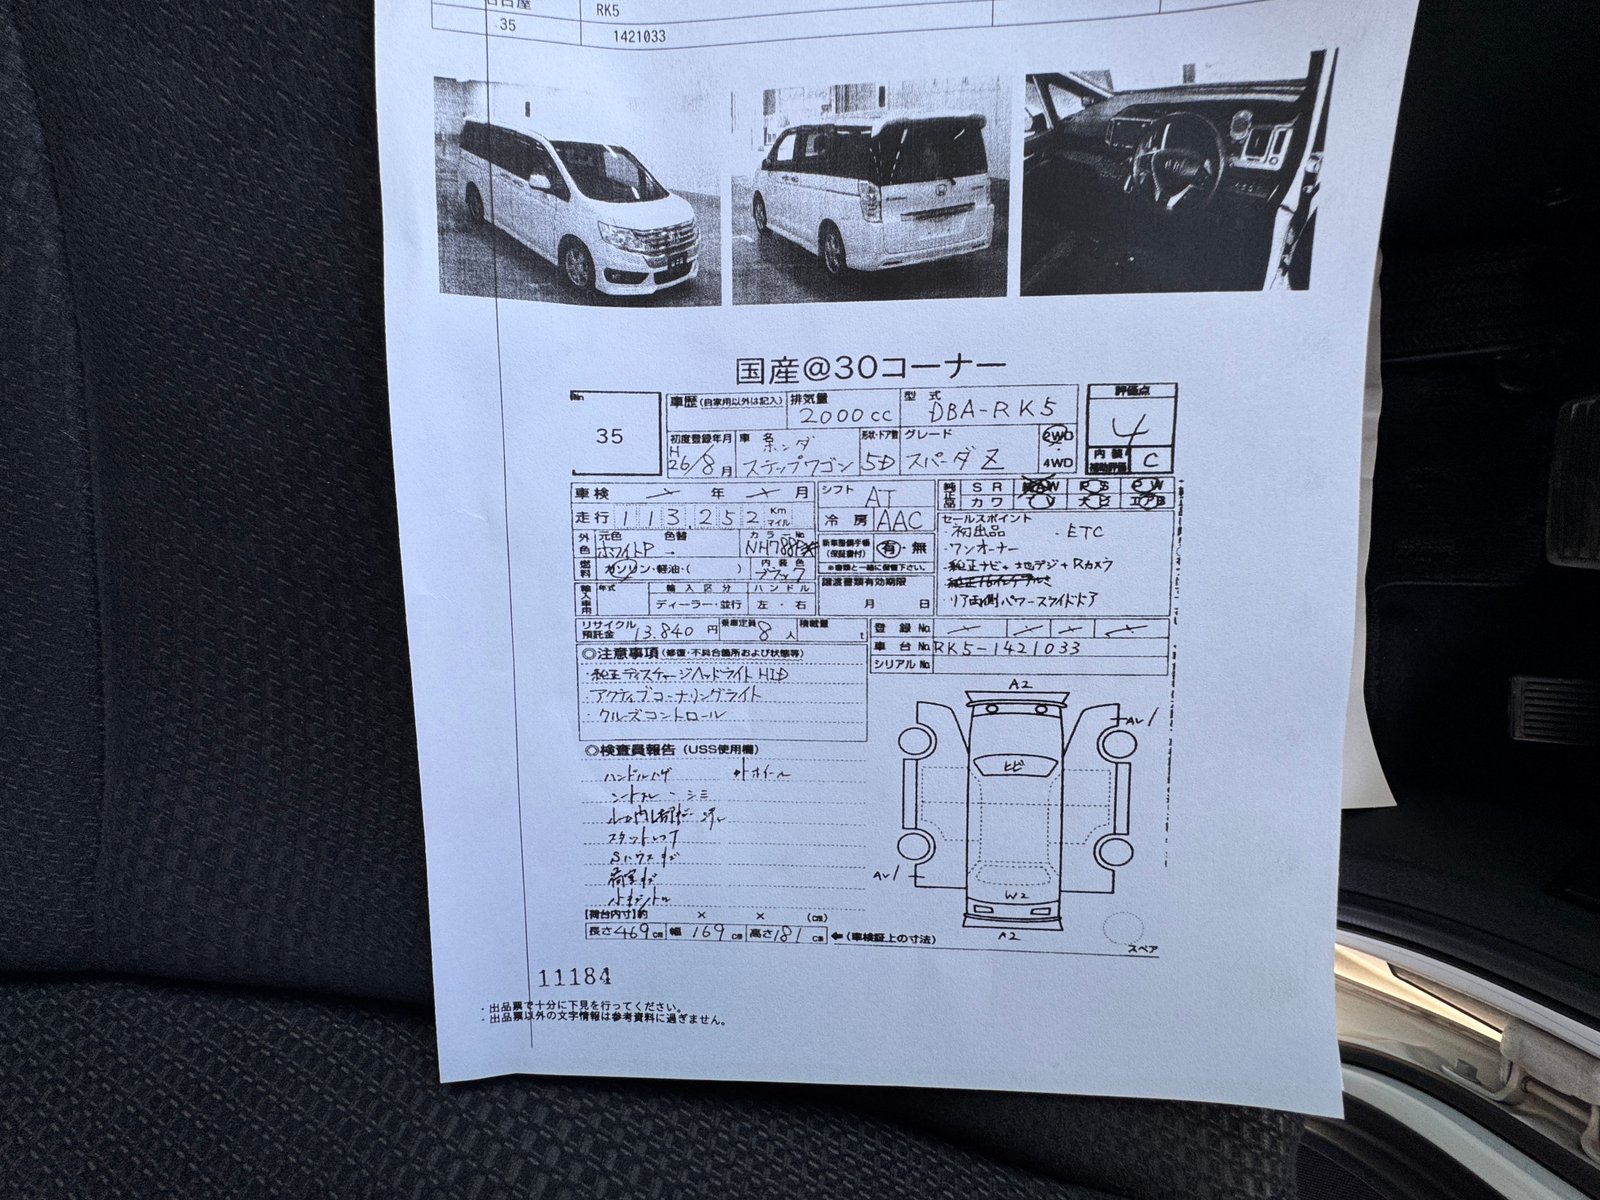 名古屋 RK5
35 1421033
国産@30コーナー
35
車歴(自家用以外は記入) 排気量 2000cc 型式 DBA-RK5 評価点 4
初度登録年月 H26/8月 車名 ホンダ ステップワゴン 形状・ドア数 5D グレード スパーダZ 2WD・4WD 内装補助評価 C
車検 年 月 シフト AT 純正品 SR AW PS PW
カワ TV エアB
走行 113,252 Km マイル 冷房 AAC
セールスポイント
・初出品 ・ETC
・ワンオーナー
・純正ナビ+地デジ+Rカメラ
・リア両側パワースライドドア
外色 元色 ホワイトP 色替 → カラーNo. NH788P
新車整備手帳(保証書付) 有・無
※書類と一緒に保管下さい。
燃料 ガソリン・軽油・( ) 内装色 ブラック
譲渡書類有効期限
月 日
輸入車用 年式 輸入区分 ハンドル
ディーラー・並行 左・右
リサイクル預託金 13,840円 乗車定員 8人 積載量 t
登録No.
車台No. RK5-1421033
シリアルNo.
◎注意事項(修復・不具合箇所および状態等)
・純正ディスチャージヘッドライトHID
・アクティブコーナリングライト
・クルーズコントロール
◎検査員報告(USS使用欄)
ハンドルハゲ
A2
AV1
ヒビ
AV1
W2
A2
スペア
【荷台内寸】約 × × (cm)
長さ469cm 幅169cm 高さ181cm ←(車検証上の寸法)
11184
・出品票で十分に下見を行ってください。
・出品票以外の文字情報は参考資料に過ぎません。